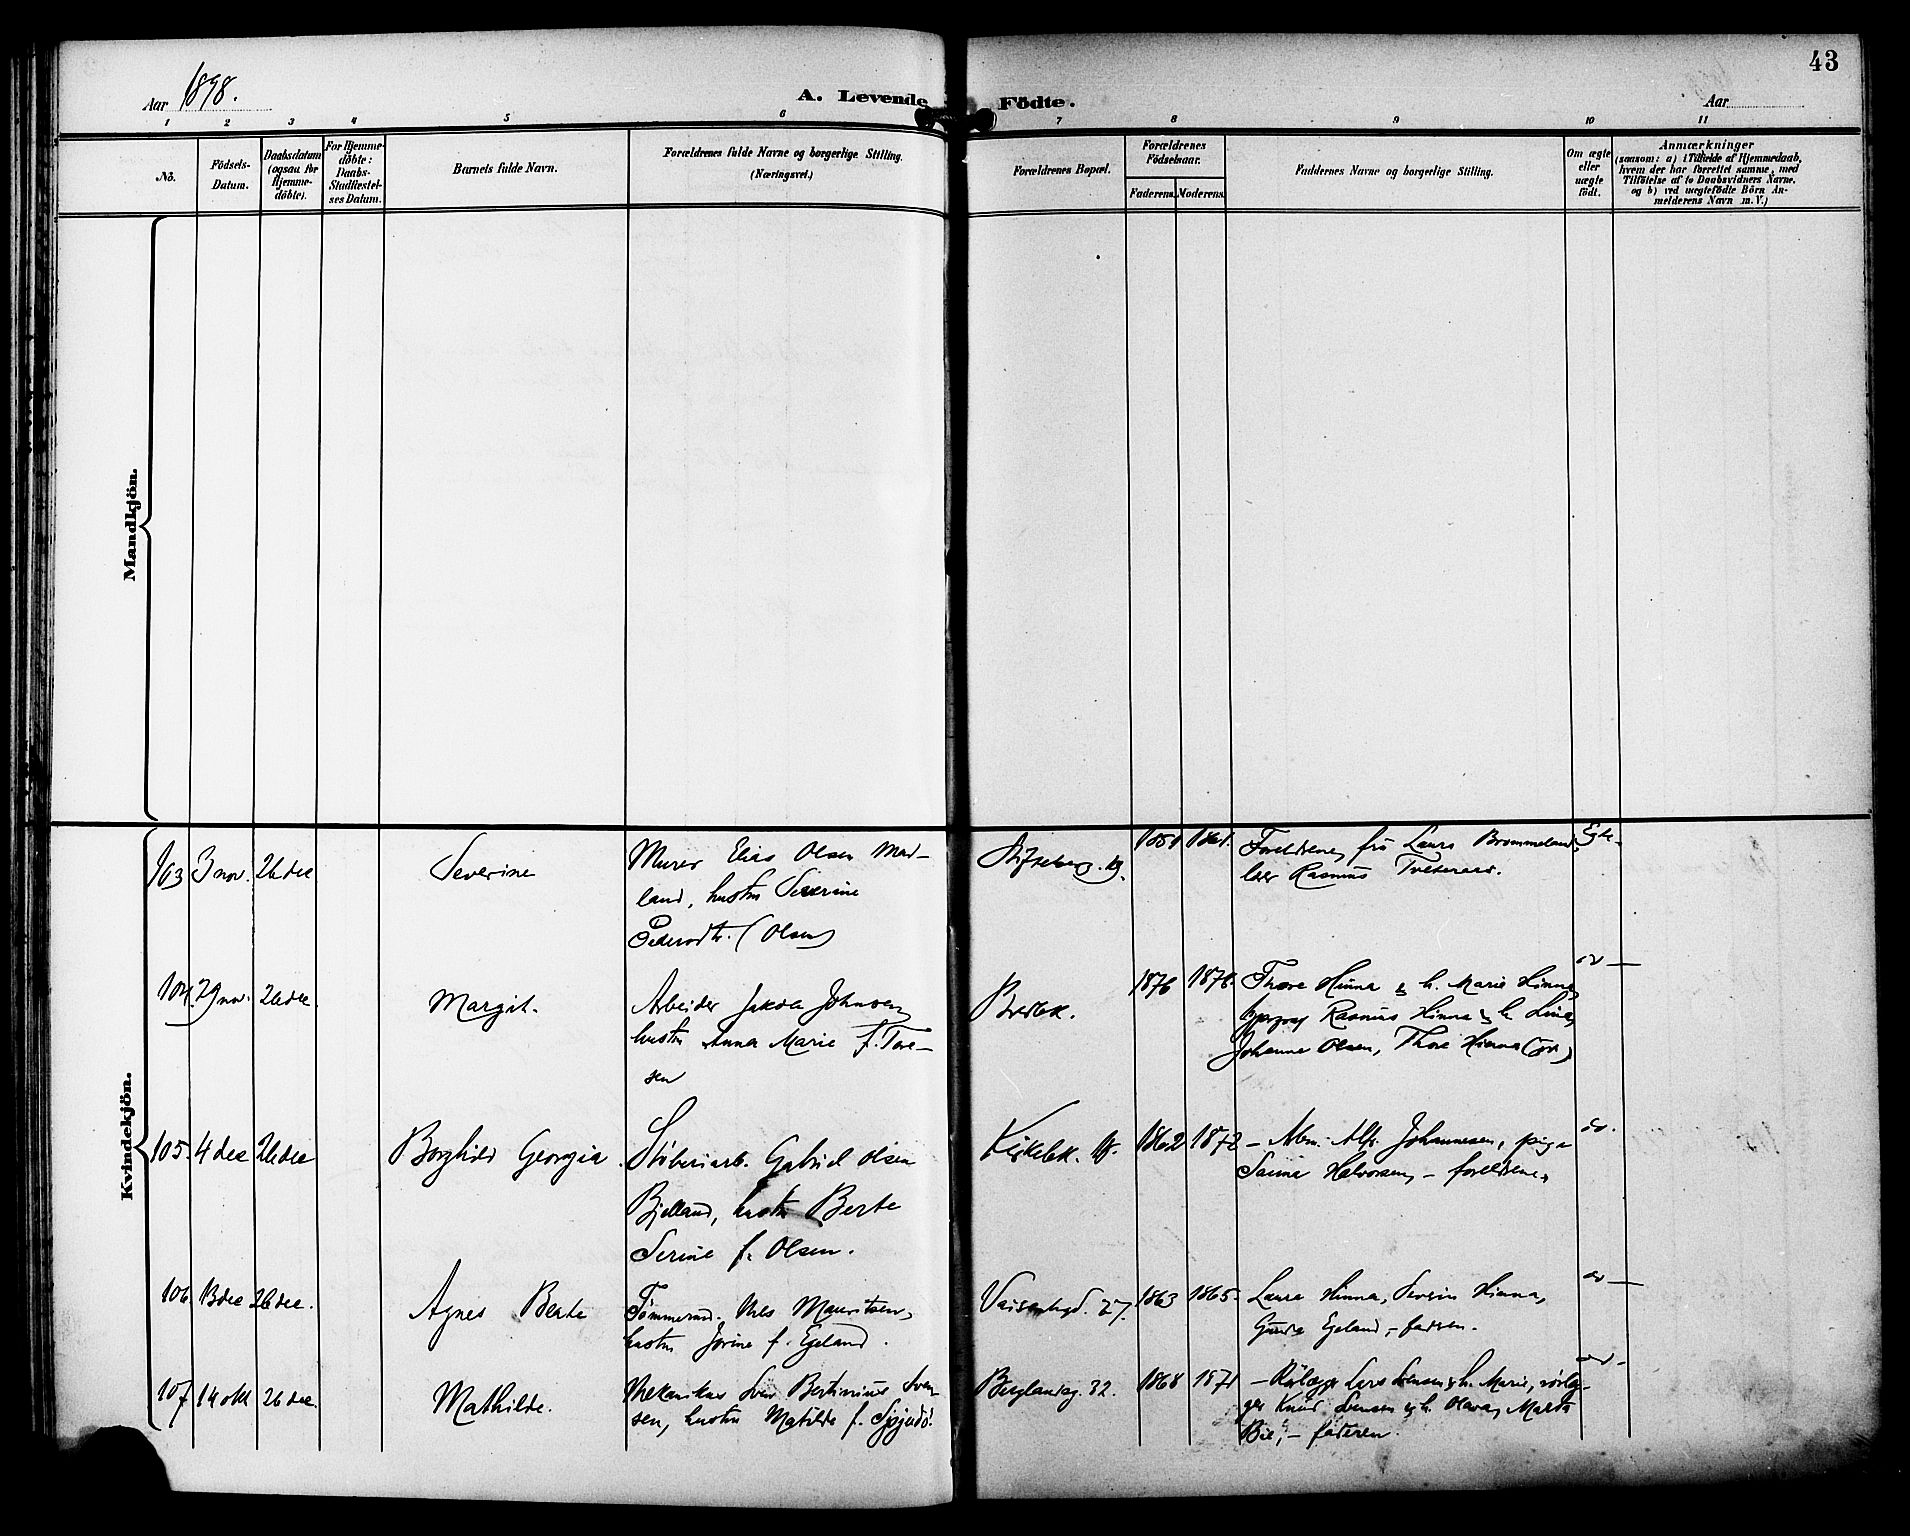 43
Aar 1898.
A. Levende Födte.
Aar
1 2 3 4 5 6 7 8 9 10 11
Nö.
Födsels-
Datum.
Daabsdatum
(ogsaa for
Hjemme-
döbte).
For Hjemme-
döbte:
Daabs-
Stadfæstel-
ses Datum.
Barnets fulde Navn.
Forældrenes fulde Navne og borgerlige Stilling.
(Næringsvei.)
Forældrenes Bopæl.
Forældrenes
Födselsaar.
Faderens. Moderens.
Faddernes Navne og borgerlige Stilling.
Om ægte
eller
uægte
födt.
Anmærkninger
(saasom: a) i Tilfælde af Hjemmedaab,
hvem der har forrettet samme, med
Tilföielse af to Daabsvidners Navne.
og b) ved uægtefödte Börn An-
melderens Navn m. V.)
Mandkjön.
Kvindekjön.
103 3 nov. 26 dec
Severine
Murer Elias Olsen Mad-
land, hustru Severine
Pedersdtr. (Olsen)
1851 1861.
Forældrene, frk Laura Brommeland,
Rasmus Tveteraas.
Egte
104. 29 nov. 26 dec.
Margit.
Arbeider Jakob Johnsen,
hustru Anna Marie f. Tore-
sen
Bredbk.
1876 1878.
Thore Hinna & h. Marie Hinna,
Rasmus Hinna & h. Lina,
Johanne Olsen, Thore Hinna (jr.)
do —
105. 4 dec 26 dec
Borghild Georgia
Støberiarb. Gabriel Olsen
Bjelland, hustru Berte
Serine f. Olsen.
Kirkebk.
1862 1872
— Arbm. Alfr. Johannesen, pige
Sanna Halvorsen, – forældrene.
do.
106. 13 dec 26 dec.
Agnes Berte
Tømmermd. Nils Mauritsen,
hustru Jorine f. Egeland.
Vaisenhgd. 27.
1863 1865.
Laura Hinna, Sevrin Hinna,
Gurda Egeland, – faderen.
do —
107 14 okt 26 dec.
Mathilde.
Mekanikus Sven Bertinius Sven-
sen, hustru Matilde f.
Berglandsg. 32.
1868 1871
— Rørlægger Lars Svensen & h. Marie, rørlæg-
ger Knud Svensen & h. Olava, Marta
Bie, – faderen.
do –